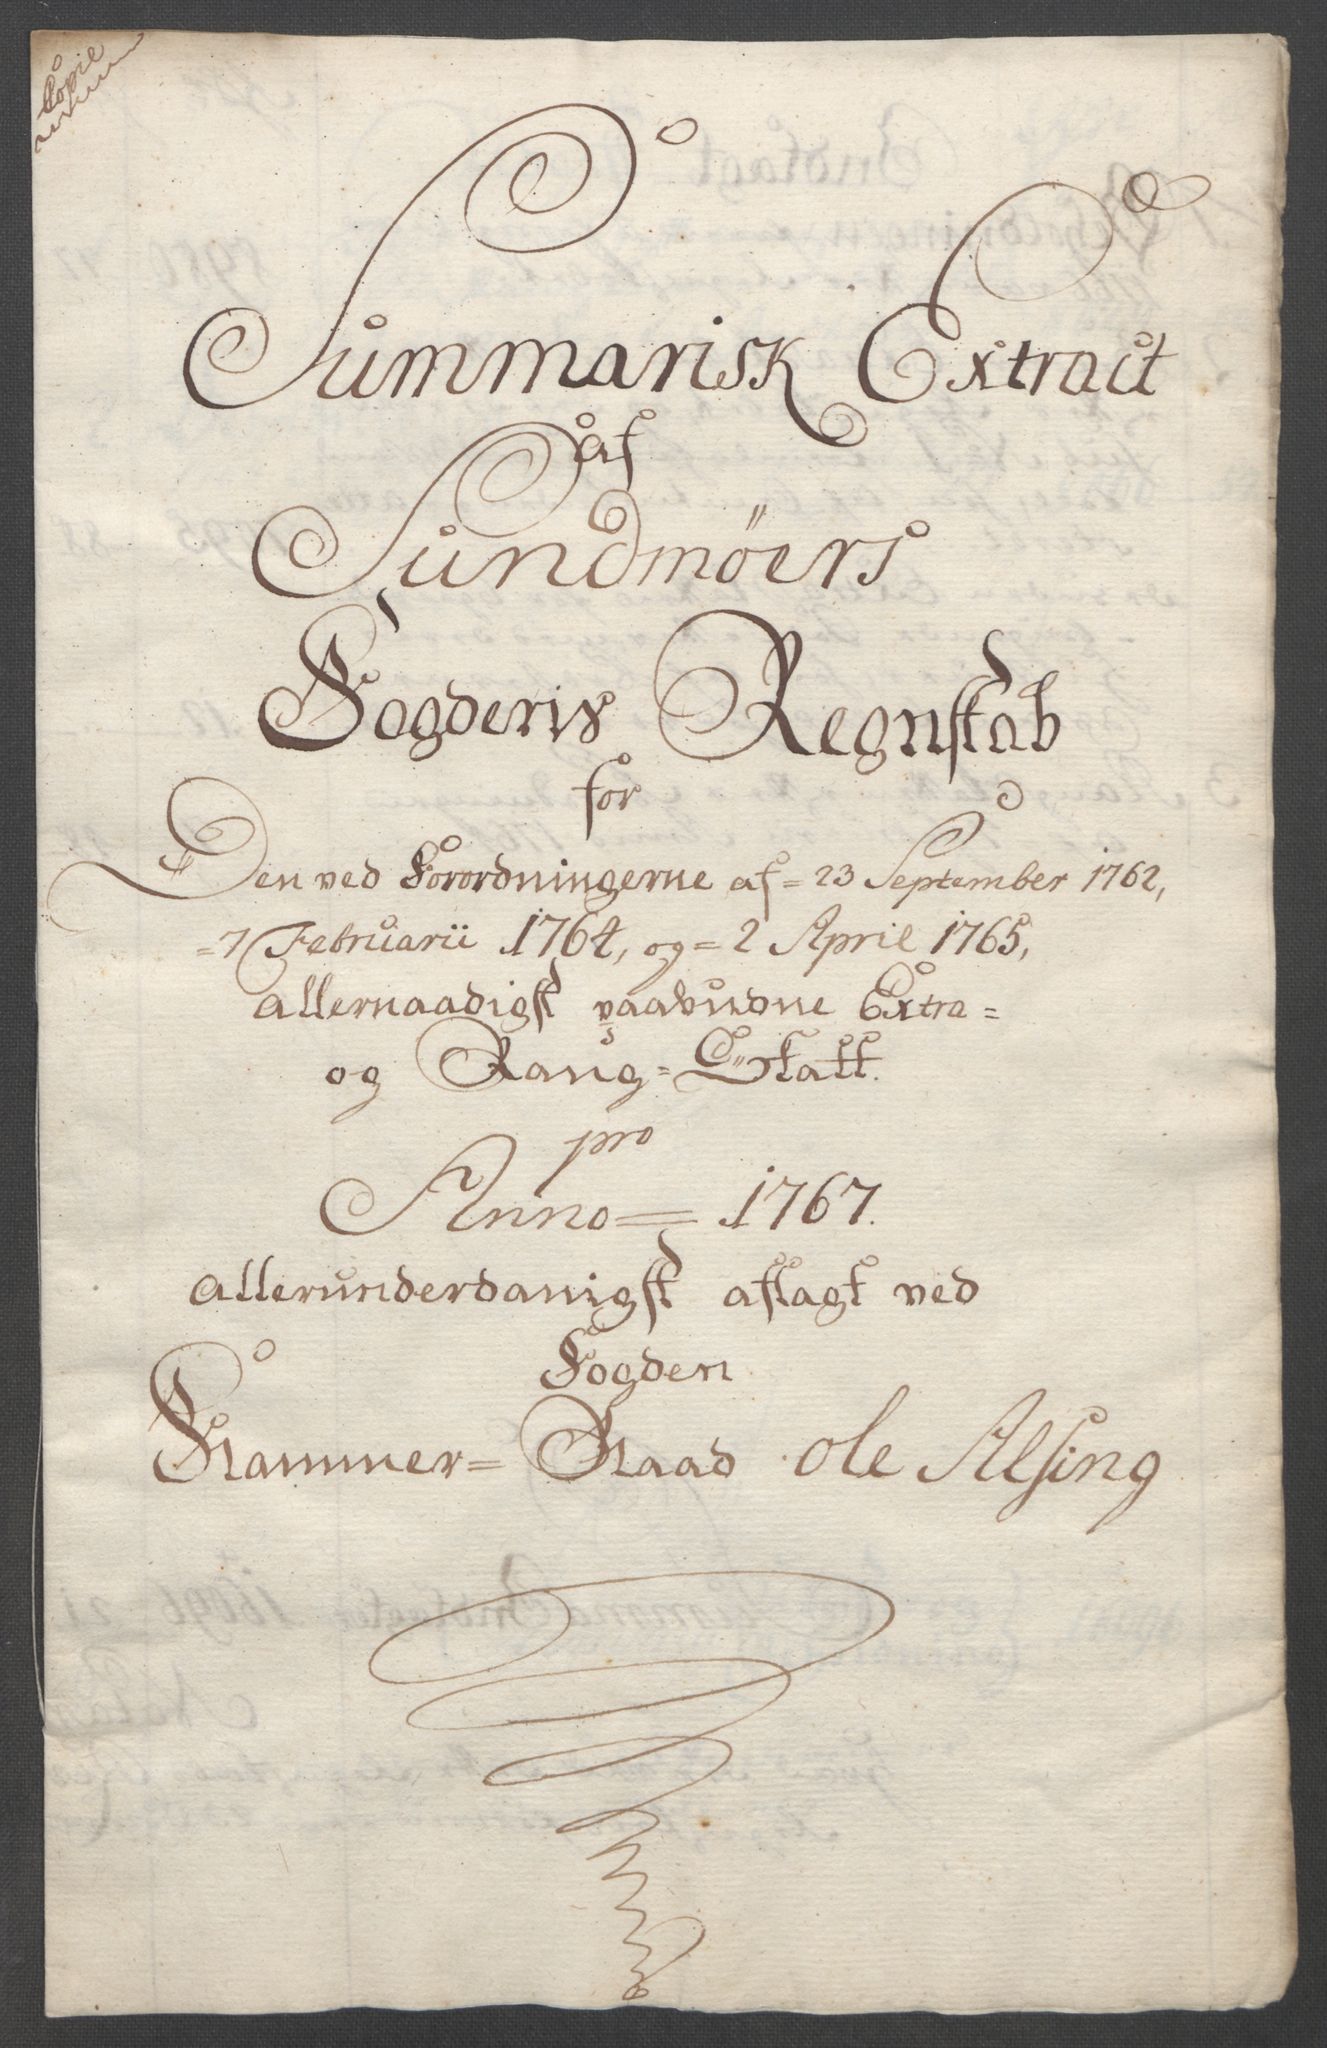 Copie
Summarisk Extract
af
Sundmöers
Fogderis Regnskab
for
Den ved Forordningerne af = 23 September 1762,
= 7 Februarii 1764, og = 2 April 1765,
allernaadigst paabudne Extra =
og Rang = Skatt.
pro
Anno = 1767.
allerunderdanigst aflagt ved
Fogden
Kammer = Raad Ole Alsing